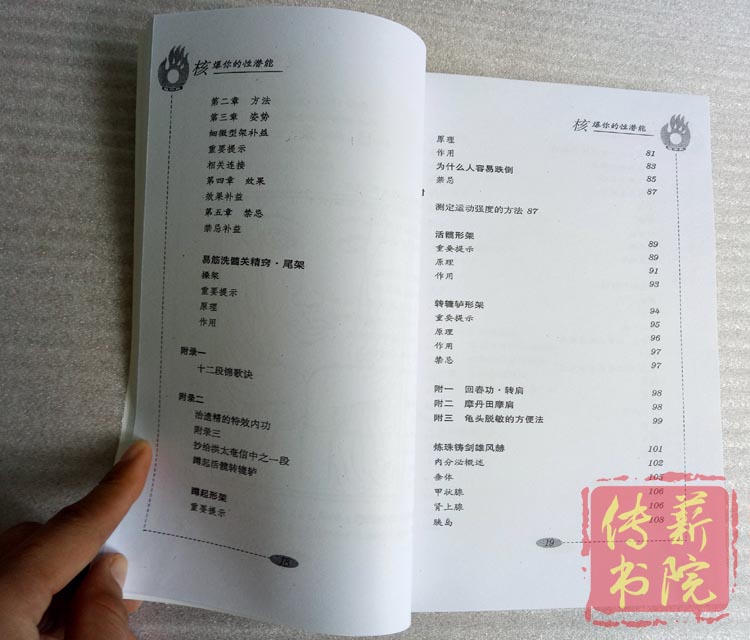 核 爆你的性潜能
第二章 方法
第三章 姿势
细微型架补益
重要提示
相关连接
第四章 效果
效果补益
第五章 禁忌
禁忌补益
易筋洗髓关精窍·尾架
操架
重要提示
原理
作用
附录一
十二段锦歌诀
附录二
治遗精的特效内功
附录三
抄给洪太奄信中之一段
蹲起活髋转辘轳
蹲起形架
重要提示
18
核 爆你的性潜能
原理 81
作用 83
为什么人容易跌倒 85
禁忌 87
测定运动强度的方法 87
活髋形架 89
重要提示 89
原理 91
作用 93
转辘轳形架 94
重要提示 95
原理 96
作用 97
禁忌 97
附一 回春功·转肩 98
附二 摩丹田摩肩 98
附三 龟头脱敏的方便法 99
炼珠铸剑雄风赫 101
内分泌概述 102
垂体 105
甲状腺 106
肾上腺 106
胰岛 108
19
传薪
书院